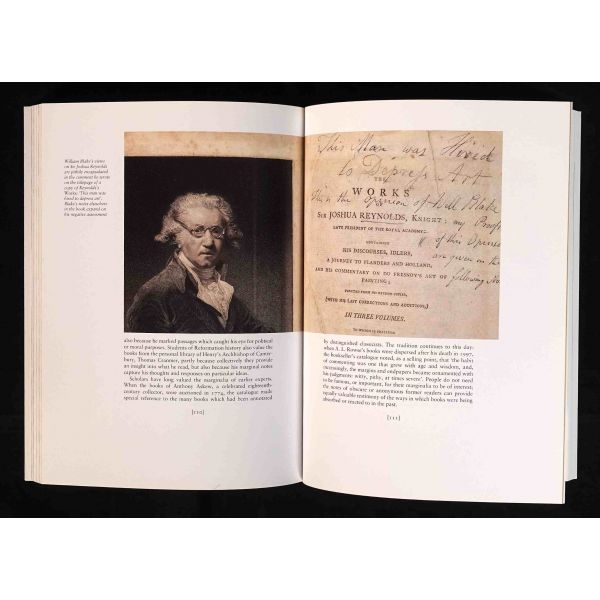 William Blake's views
on Sir Joshua Reynolds
are pithily encapsulated
in the comment he wrote
on the titlepage of a
copy of Reynolds's
Works: 'This man was
hired to depress art'.
Blake's notes elsewhere
in the book expand on
his negative assessment
also because he marked passages which caught his eye for political
or moral purposes. Students of Reformation history also value the
books from the personal library of Henry's Archbishop of Canter-
bury, Thomas Cranmer, partly because collectively they provide
an insight into what he read, but also because his marginal notes
capture his thoughts and responses on particular ideas.
Scholars have long valued the marginalia of earlier experts.
When the books of Anthony Askew, a celebrated eighteenth-
century collector, were auctioned in 1774, the catalogue made
special reference to the many books which had been annotated
[110]
This Man was Hired
to Depress Art
THE
WORKS
This is the opinion of Will Blake
OF
SIR JOSHUA REYNOLDS, KNIGHT;
my Proofs
LATE PRESIDENT OF THE ROYAL ACADEMY:
of this Opinion
CONTAINING
are given in the
HIS DISCOURSES, IDLERS,
A JOURNEY TO FLANDERS AND HOLLAND,
following
AND HIS COMMENTARY ON DU FRESNOY'S ART OF
PAINTING;
PRINTED FROM HIS REVISED COPIES,
(WITH HIS LAST CORRECTIONS AND ADDITIONS,)
IN THREE VOLUMES.
TO WHICH IS PREFIXED
by distinguished classicists. The tradition continues to this day:
when A. L. Rowse's books were dispersed after his death in 1997,
the bookseller's catalogue noted, as a selling point, that 'the habit
of commenting was one that grew with age and wisdom, and,
increasingly, the margins and endpapers became ornamented with
his judgments: witty, pithy, at times severe'. People do not need
to be famous, or important, for their marginalia to be of interest;
the notes of obscure or anonymous former readers can provide
equally valuable testimony of the ways in which books were being
absorbed or reacted to in the past.
[111]